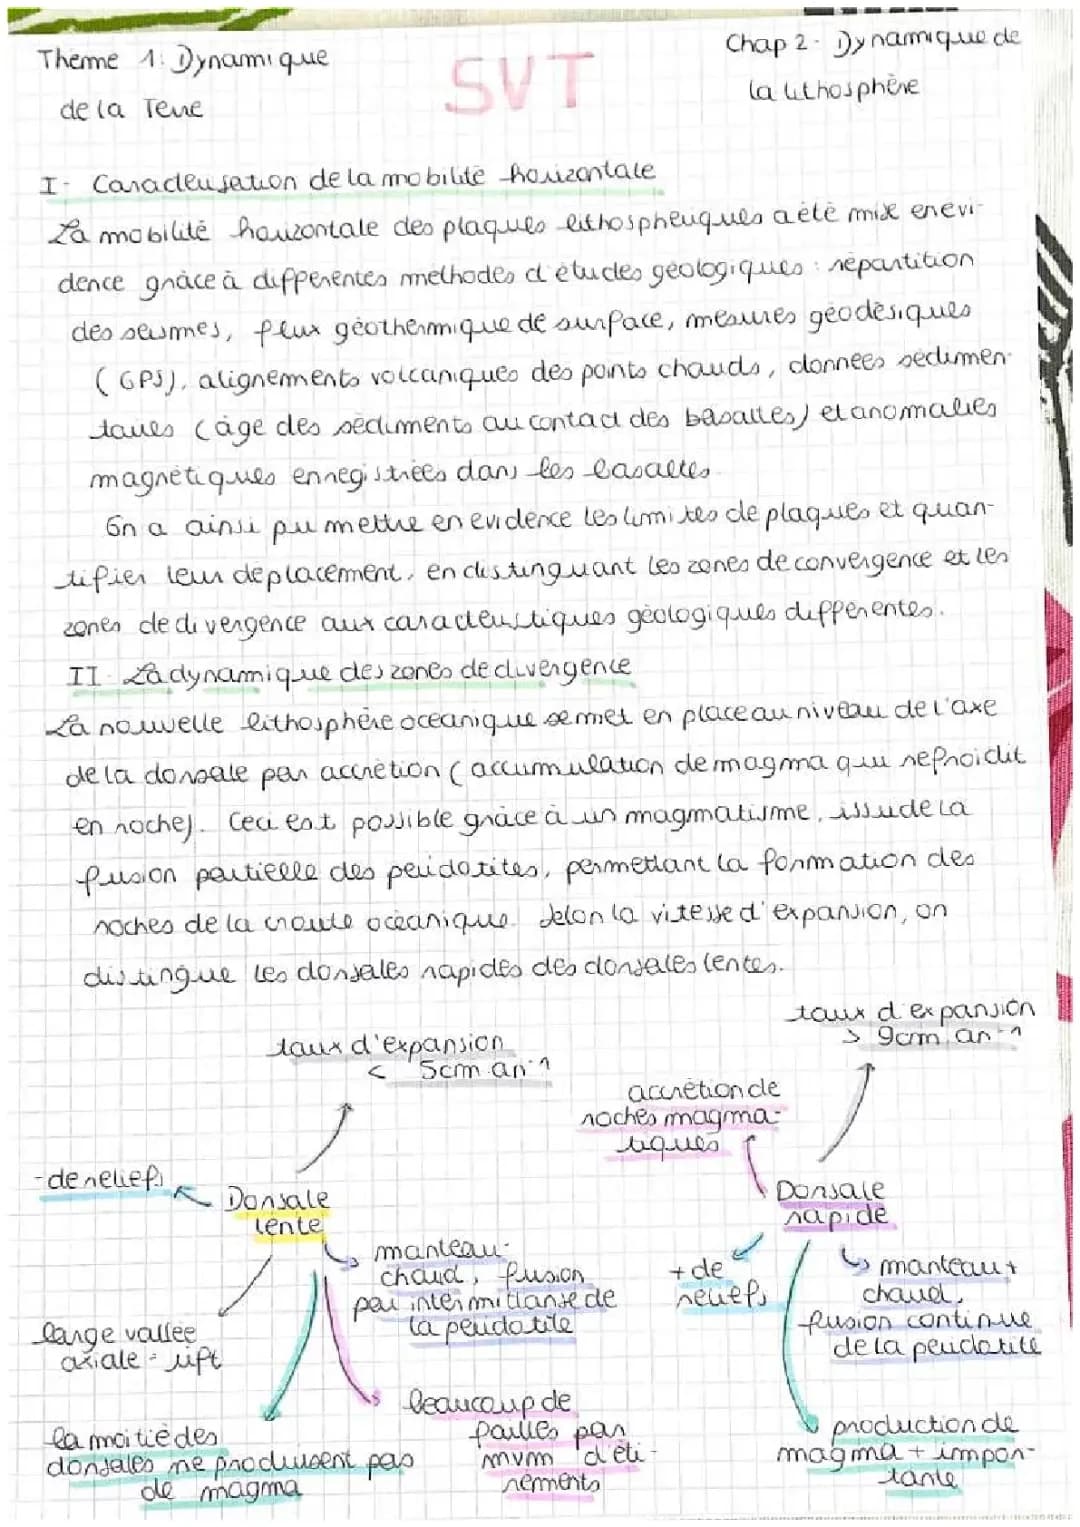 Thème 1: Dynamique
de la Terre
SVT
Chap 2 - Dynamique de
la lithosphère
I - Caractérisation de la mobilité horizontale
La mobilité horizontale des plaques lithosphériques a été mise en évi-
dence grâce à différentes méthodes d'études géologiques : répartition
des séismes, flux géothermique de surface, mesures géodésiques
(GPS), alignements volcaniques des points chauds, données sédimen-
taires (âge des sédiments au contact des basaltes) et anomalies
magnétiques enregistrées dans les basaltes.
On a ainsi pu mettre en évidence les limites de plaques et quan-
tifier leur déplacement, en distinguant les zones de convergence et les
zones de divergence aux caractéristiques géologiques différentes.
II - La dynamique des zones de divergence
La nouvelle lithosphère océanique se met en place au niveau de l'axe
de la dorsale par accrétion (accumulation de magma qui refroidit
en roche). Ceci est possible grâce à un magmatisme, issu de la
fusion partielle des péridotites, permettant la formation des
roches de la croute océanique. Selon la vitesse d'expansion, on
distingue les dorsales rapides des dorsales lentes.
taux d'expansion
< 5cm.an⁻¹
taux d'expansion
> 9cm.an⁻¹
accrétion de
roches magma-
tiques
- de reliefs
Dorsale
lente
Dorsale
rapide
manteau -
chaud, fusion
par intermittanse de
la péridotite
+ de
reliefs
manteau +
chaud,
fusion continue
de la péridotite
large vallée
axiale = rift
la moitié des
dorsales ne produisent pas
de magma
beaucoup de
failles par
mvm d'éti-
rements
production de
magma + impor-
tante